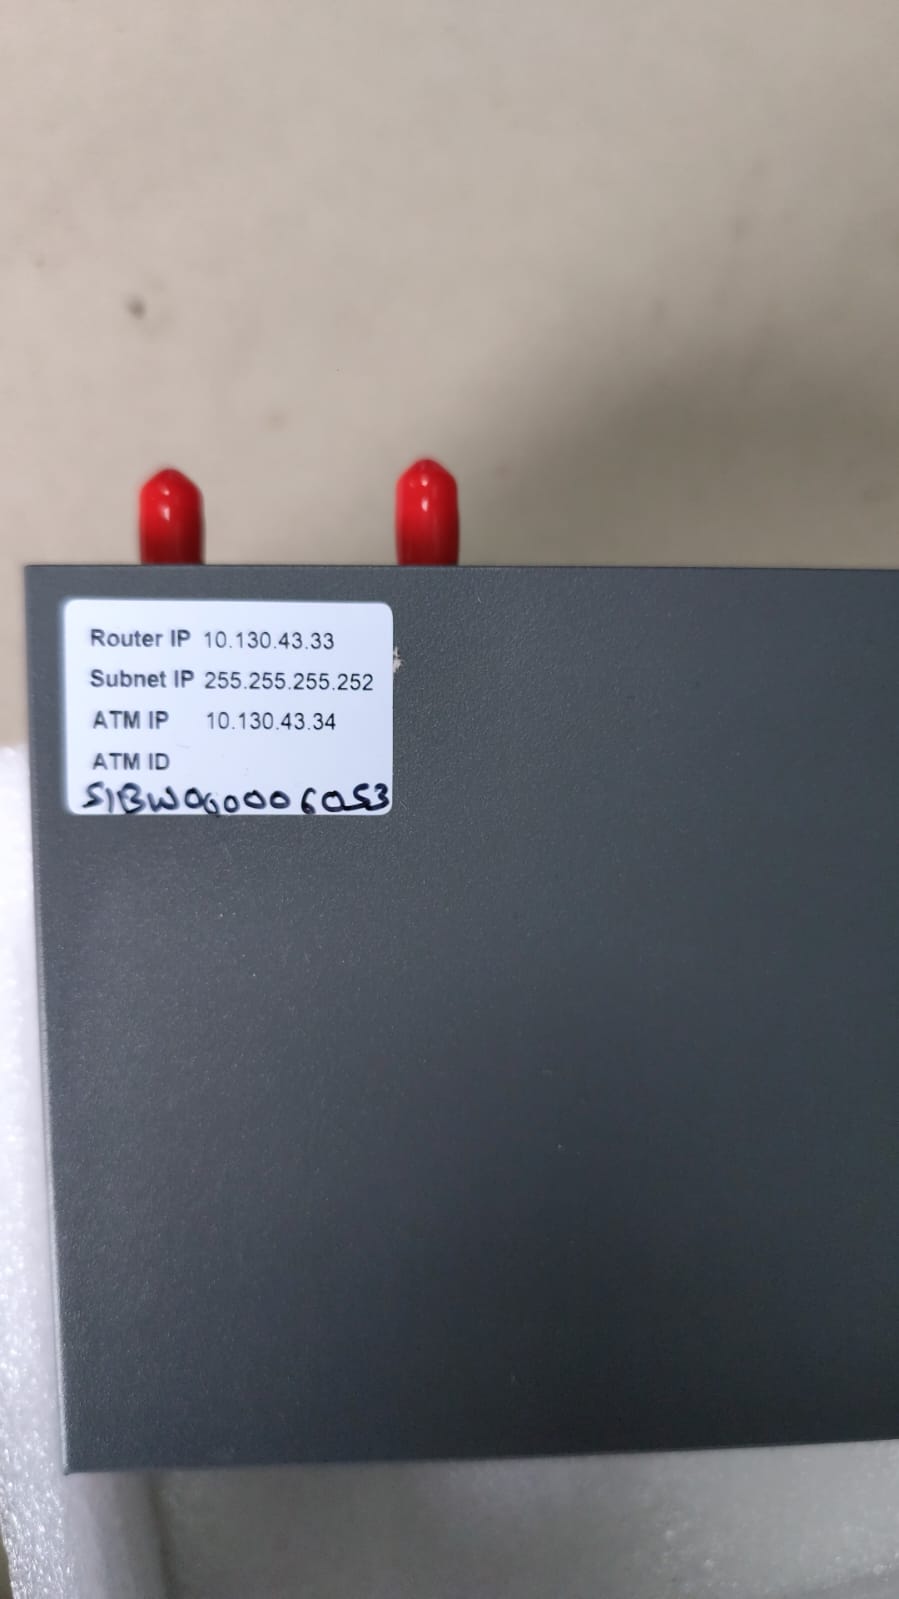 Router IP 10.130.43.33
Subnet IP 255.255.255.252
ATM IP 10.130.43.34
ATM ID